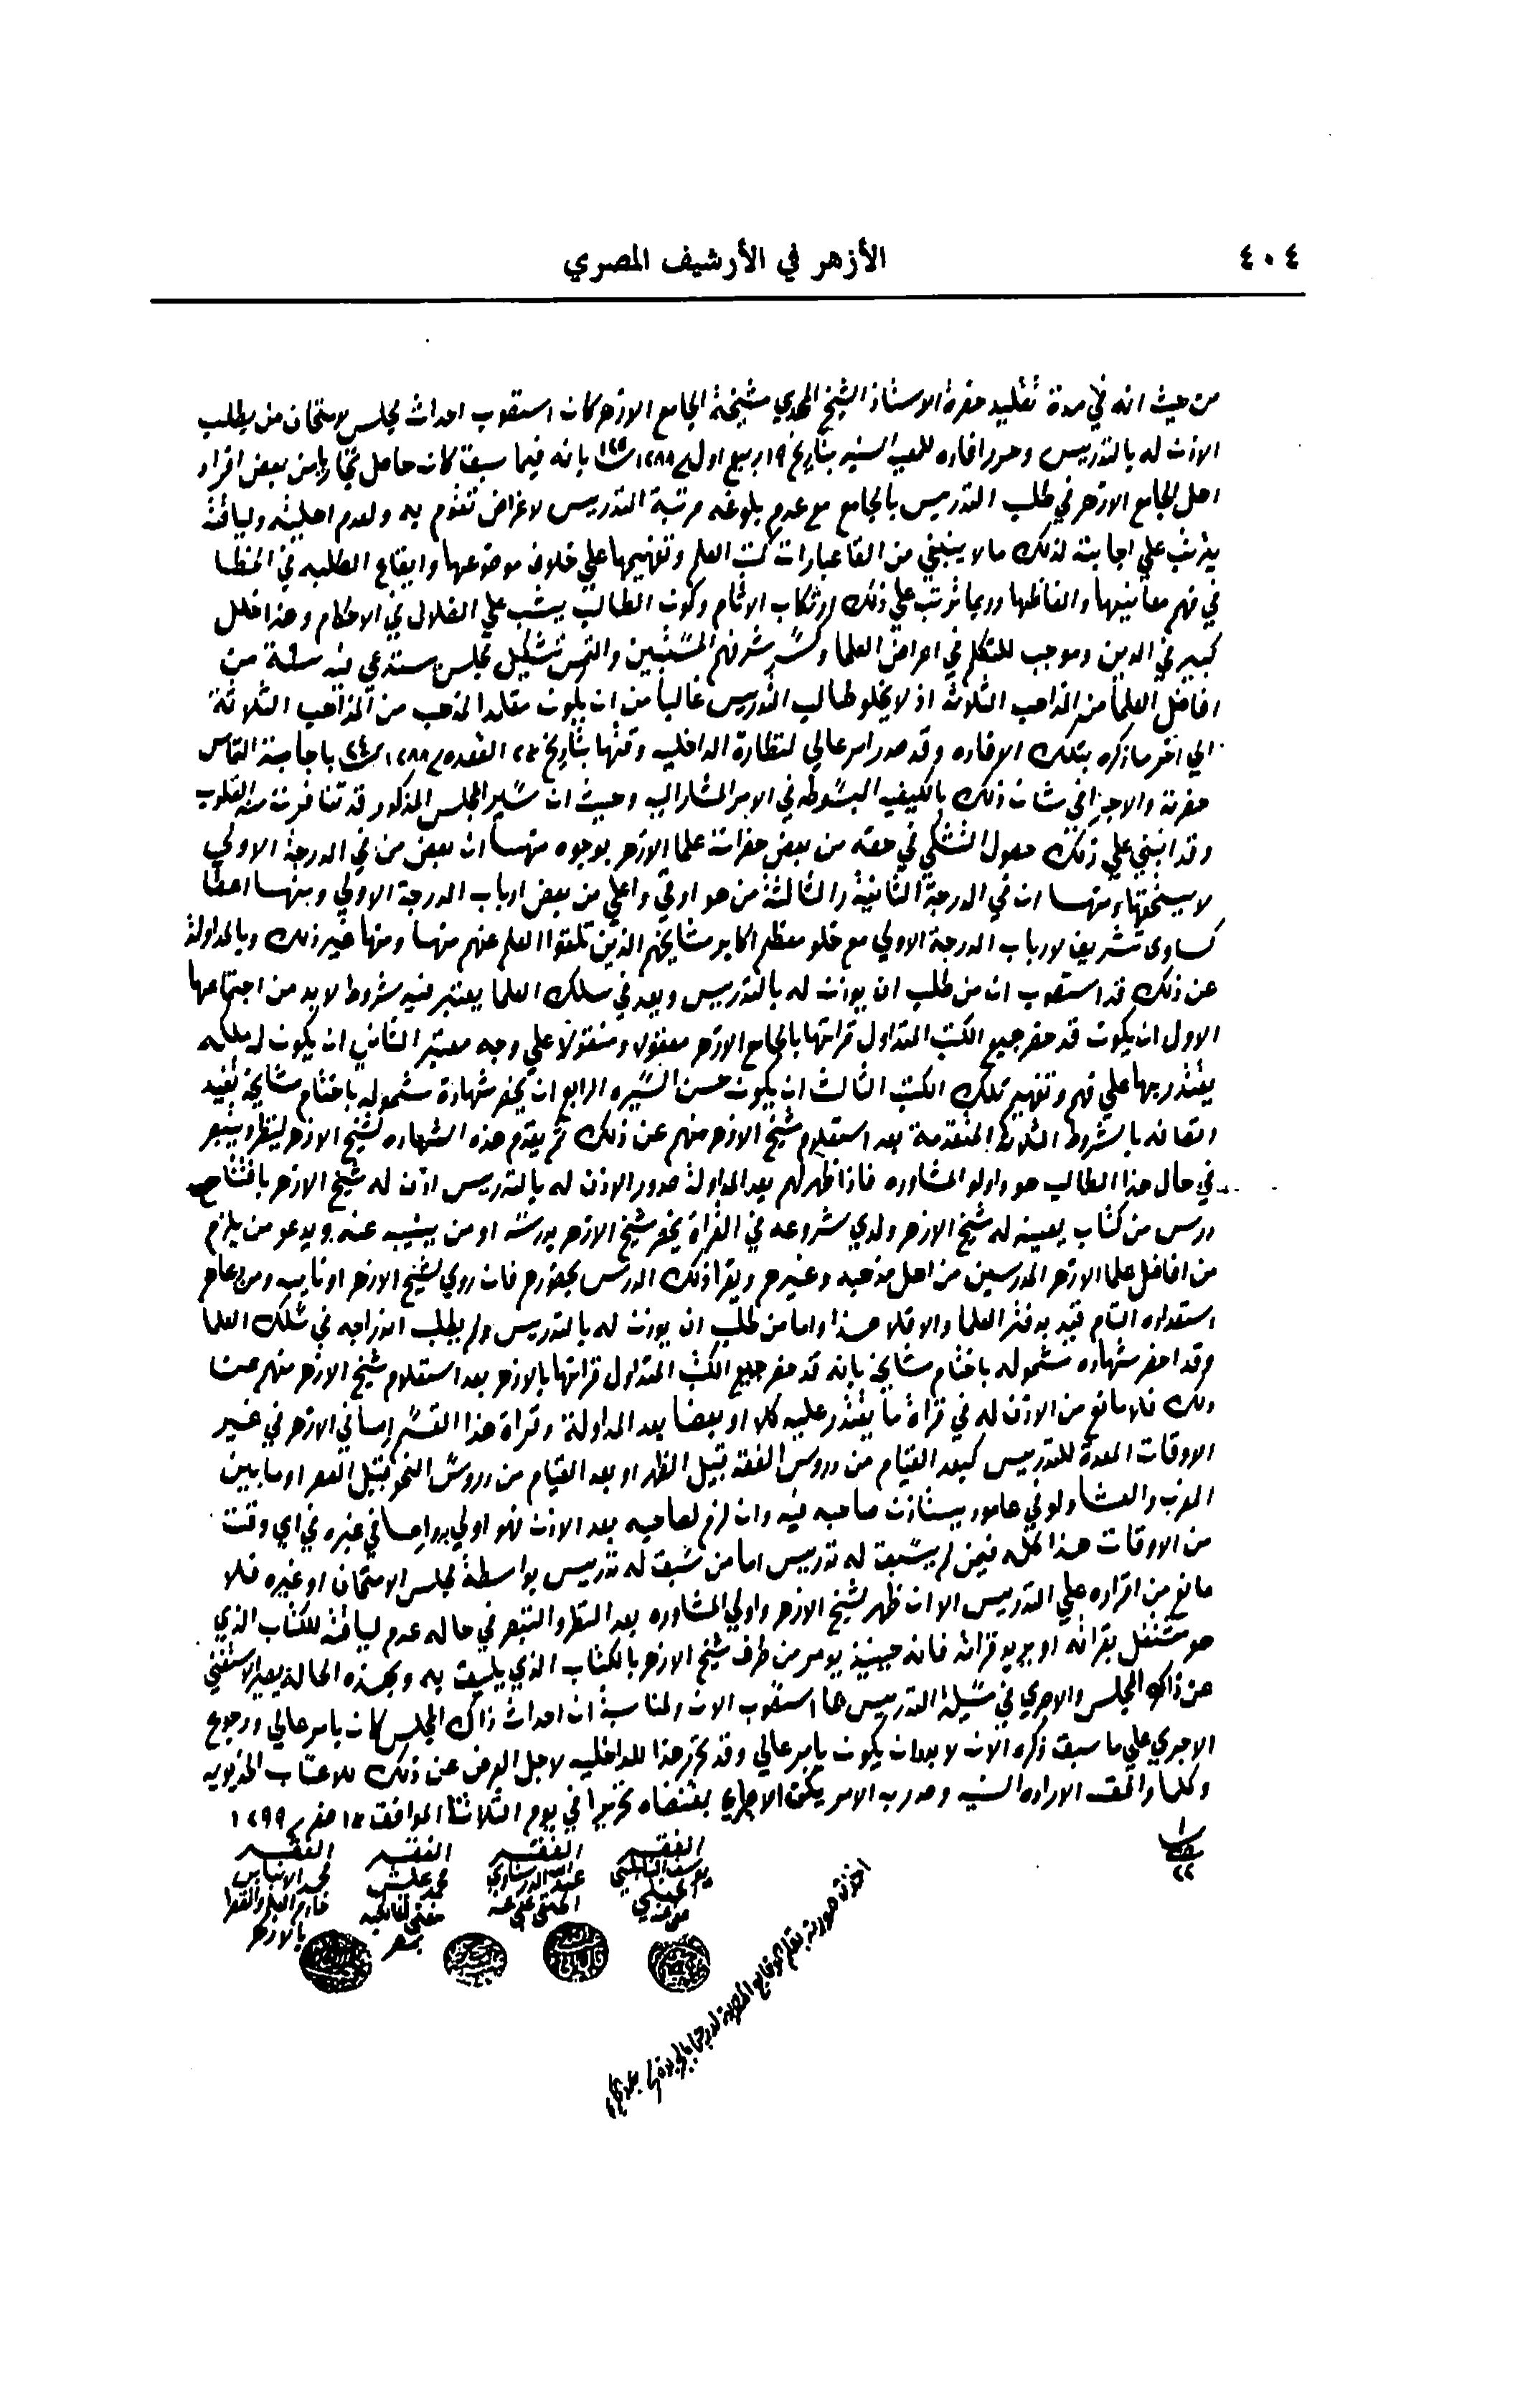 ٤٠٤
الأزهر في الأرشيف المصري
من حيث انه في مدة تقليد حضرة الاستاذ الشيخ المهدي مشيخة الجامع الازهر كان استصوب احداث مجلس لامتحان من يطلب
الاذن له بالتدريس وحرر افاده للمعيه السنيه بتاريخ ١٩ ربيع اول ١٢٨٨ بانه فيما سبق كان حاصل تجارا من بعض افراد
اهل الجامع الازهر في طلب التدريس بالجامع مع عدم بلوغه مرتبة التدريس لاغراض تقوم به ولعدم اهليته ولياقته
يترتب علي اجابته لذلك ما لا ينبغي من القا عبارات كتب العلم وتفهيمها علي خلاف موضوعها وايقاع الطلبه في الخطا
في فهم معانيها والفاظها وربما ترتب علي ذلك ارتكاب الاثام وكون الطالب يشب علي الضلال في الاحكام وهذا خلل
كبير في الدين وموجب للتكلم في اعراض العلما وكسر شرفهم المستبين والتمس تشكيل مجلس يستدعي فيه ستة من
افاضل العلما من المذاهب الثلاثة اذ لا يخلو طالب التدريس غالبا من ان يكون مقلد المذهب من المذاهب الثلاثة
الي اخر ما ذكره بتلك الافاده وقد صدر امر عالي لنظارة الداخليه وقتها بتاريخ ٢٣ القعده ١٢٨٨ باجابة التماس
حضرته والاجرا في شان ذلك بالكيفيه المبسوطه في الامر المشار اليه وحيث ان سير المجلس المذكور قد تنافرت منه القلوب
وقد انبني علي ذلك حصول التشكي في حقه من بعض حضرات علما الازهر بوجوه منها ان بعض من في الدرجة الاولي
لا يستحقها ومنها ان في الدرجة الثانية والثالثة من هو اوقي واعلي من بعض ارباب الدرجة الاولي ومنها اعطا
كساوي تشريف لارباب الدرجة الاولي مع خلو معظم اكابر مشايخهم الذين تلقوا العلم عنهم منها ومنها غير ذلك وبالمداولة
عن ذلك قد استصوب ان من طلب ان يوذن له بالتدريس ويعد في سلك العلما يعتبر فيه شروط لا بد من اجتماعها
الاول ان يكون قد حضر جميع الكتب المتداول قرائتها بالجامع الازهر معقولا ومنقولا علي وجه معتبر الثاني ان يكون له ملكه
يقتدر بها علي فهم وتفهيم تلك الكتب الثالث ان يكون حسن السيره الرابع ان يحضر شهادة مشموله باختام مشايخه تفيد
اتصافه بالشروط الثلاثة المتقدمة بعد استعلام شيخ الازهر منهم عن ذلك ثم يقدم هذه الشهاده لشيخ الازهر لينظر ويتبصر
في حال هذا الطالب هو واولو المشاوره فاذا ظهر لهم بعد المداولة صدور الاذن له بالتدريس اذن له شيخ الازهر بافتتاح
درس من كتاب يعينه له شيخ الازهر ولدي شروعه في القراة يحضر شيخ الازهر بدرسه او من ينيبه عنه ويدعو من يلزم
من افاضل علما الازهر المدرسين من اهل مذهبه وغيرهم ويقرا ذلك الدرس بحضورهم فان روي لشيخ الازهر او نايبه ومن دعاهم
استعداده التام قيد بدفتر العلما والا فلا هذا واما من طلب ان يوذن له بالتدريس ولم يطلب اندراجه في سلك العلما
وقد احضر شهاده مشموله باختام مشايخه بانه قد حضر جميع الكتب المتداول قرائتها بالازهر بعد استعلام شيخ الازهر منهم عن
ذلك فلا مانع من الاذن له في قراة ما يقتدر عليه كلا او بعضا بعد المداولة وقراة هذا القسم اما في الازهر في غير
الاوقات المعدة للتدريس كبعد القيام من دروس الفقه قبيل الظهر او بعد القيام من دروس النحو قبيل العصر او ما بين
المغرب والعشا ولو في عامود يستاذن صاحبه فيه وان لزم لصاحبه بعد الاذن فهو اولي به واما في غيره في اي وقت
من الاوقات هذا كله فيمن لم يسبق له تدريس اما من سبق له تدريس بواسطة مجلس الامتحان او غيره فلا
مانع من اقراره علي التدريس الا ان ظهر لشيخ الازهر واولي المشاوره بعد النظر والتبصر في حاله عدم لياقته للكتاب الذي
هو مشتغل بقرائته او يريد قرائته فانه حينيذ يومر من طرف شيخ الازهر بالكتاب الذي يليق به وبهذه الحالة يصير الاستغني
عن ذاك المجلس والاجري في مسيلة التدريس ما استصوب الان ولمناسبة ان احداث ذاك المجلس كان بامر عالي ورجوع
الاجري علي ما سبق ذكره الان لا بد ان يكون بامر عالي وقد تحرر هذا للداخليه لاجل العرض عن ذلك للاعتاب الخديويه
وكلما وافقت الاراده السنيه وصدر به الامر يكن الاجري بمقتضاه تحريرا في يوم الثلاثا الموافق ١٣ صفر ١٢٩٩
الفقير
يوسف النابلسي
الحنبلي
الفقير
عبد الله الدرستاوي
الحنفي عفي عنه
الفقير
محمد عليش
مفتي المالكيه
بمصر
الفقير
محمد الانبابي
خادم العلم والفقرا
بالازهر